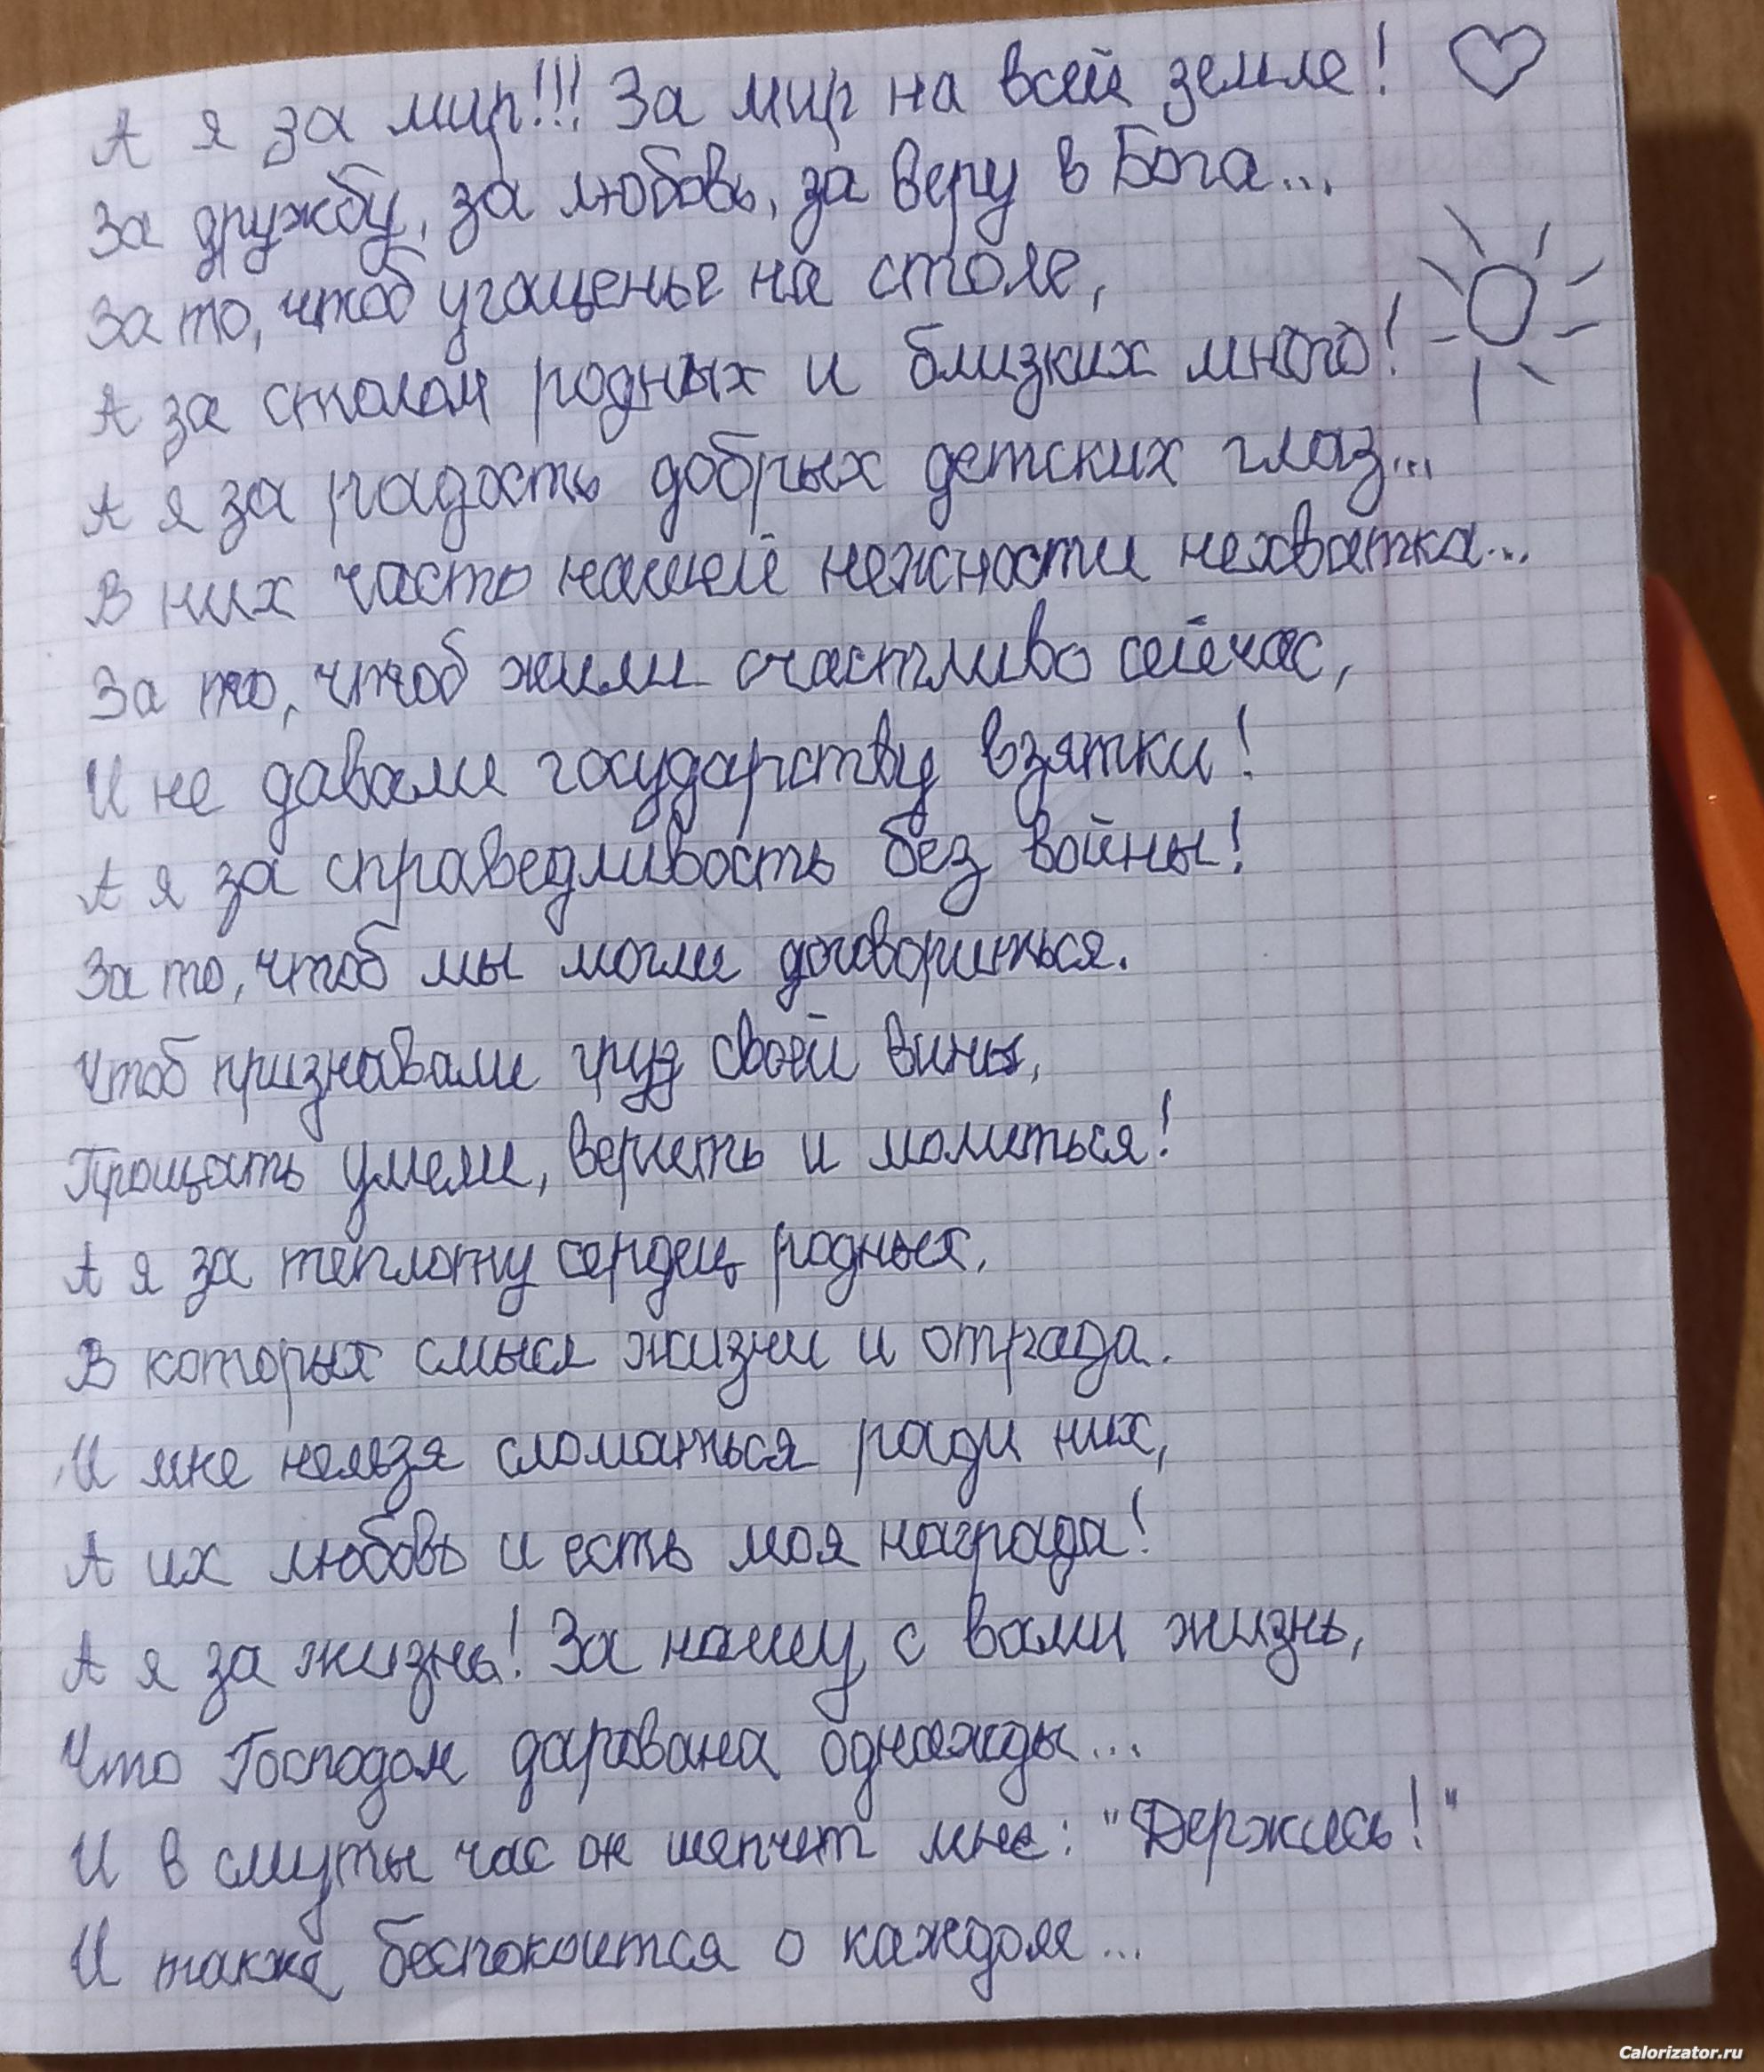 А я за мир!!! За мир на всей земле!
За дружбу, за любовь, за веру в Бога...
За то, чтоб угощенье на столе,
А за столом родных и близких много!
А я за радость добрых детских глаз...
В них часто нашей нежности нехватка...
За то, чтоб жили счастливо сейчас,
И не давали государству взятки!
А я за справедливость без войны!
За то, чтоб мы могли договориться.
Чтоб признавали груз своей вины,
Прощать умели, верить и молиться!
А я за теплоту сердец родных,
В которых смысл жизни и отрада.
И мне нельзя сломаться ради них,
А их любовь и есть моя награда!
А я за жизнь! За нашу с вами жизнь,
Что Господом дарована однажды...
И в смуты час он шепчет мне: "Держись!"
И также беспокоится о каждом...
Calorizator.ru